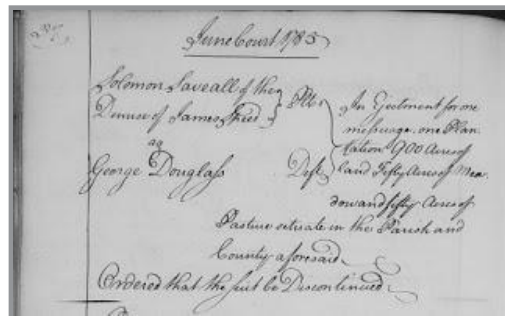 June Court 1785
Solomon Saveall of the
Demise of James Reed } Plt.
ag
George Douglass Deft
In Ejectment for one
messuage one Plan
tation 900 Acres of
land Fifty Acres of Mea
dow and fifty Acres of
Pasture setuate in the Parish and
County aforesaid
Ordered that the suit be Discontinued